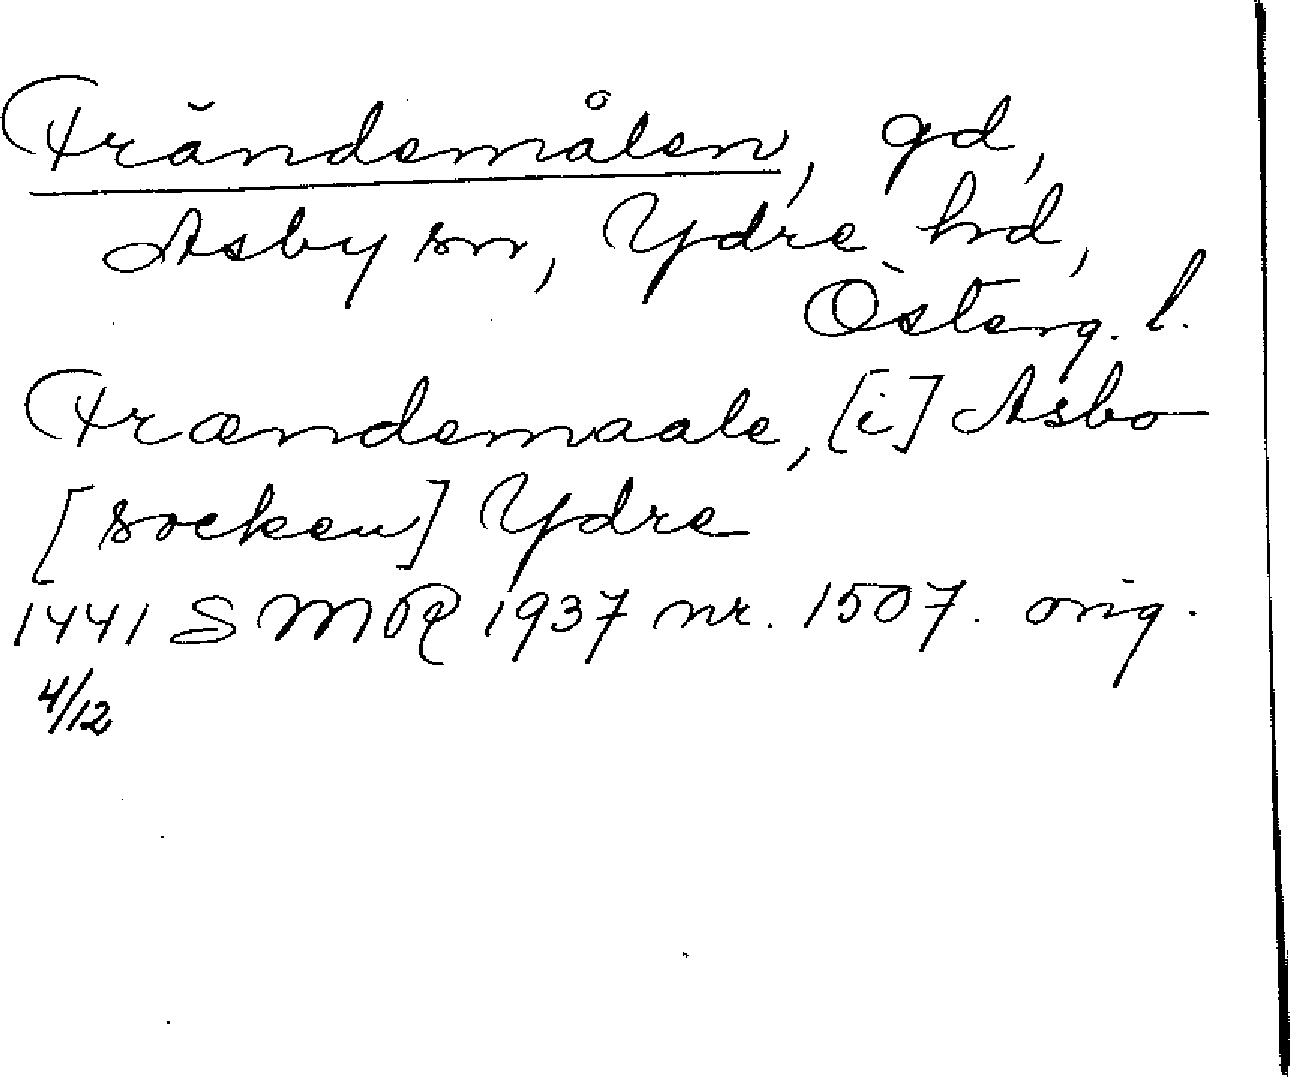 Frändemålen, gd,
Asby sn, Ydre hd,
Österg. l.
Frændemaale, [i] Asbo
[socken] Ydre
1441 SMR 1937 nr. 1507. orig.
4/12